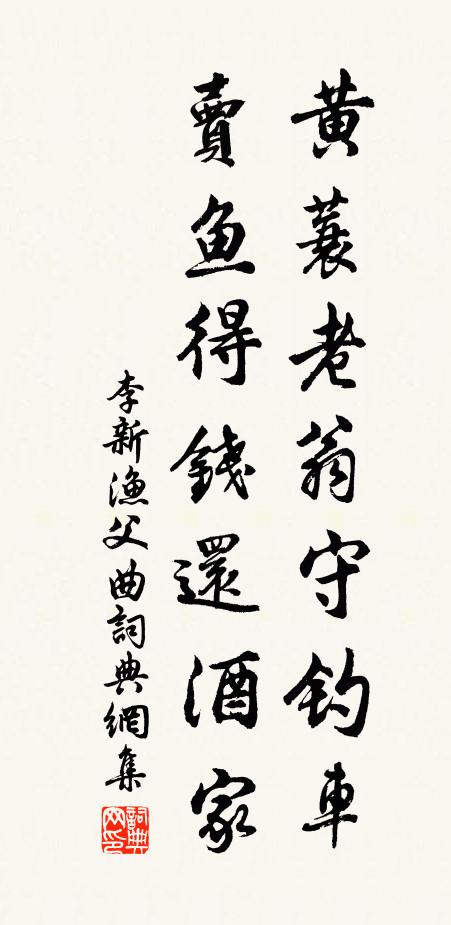 黄蓑老翁守钓車
賣鱼得錢還酒家
李新漁父曲詞典網集
詞典网印